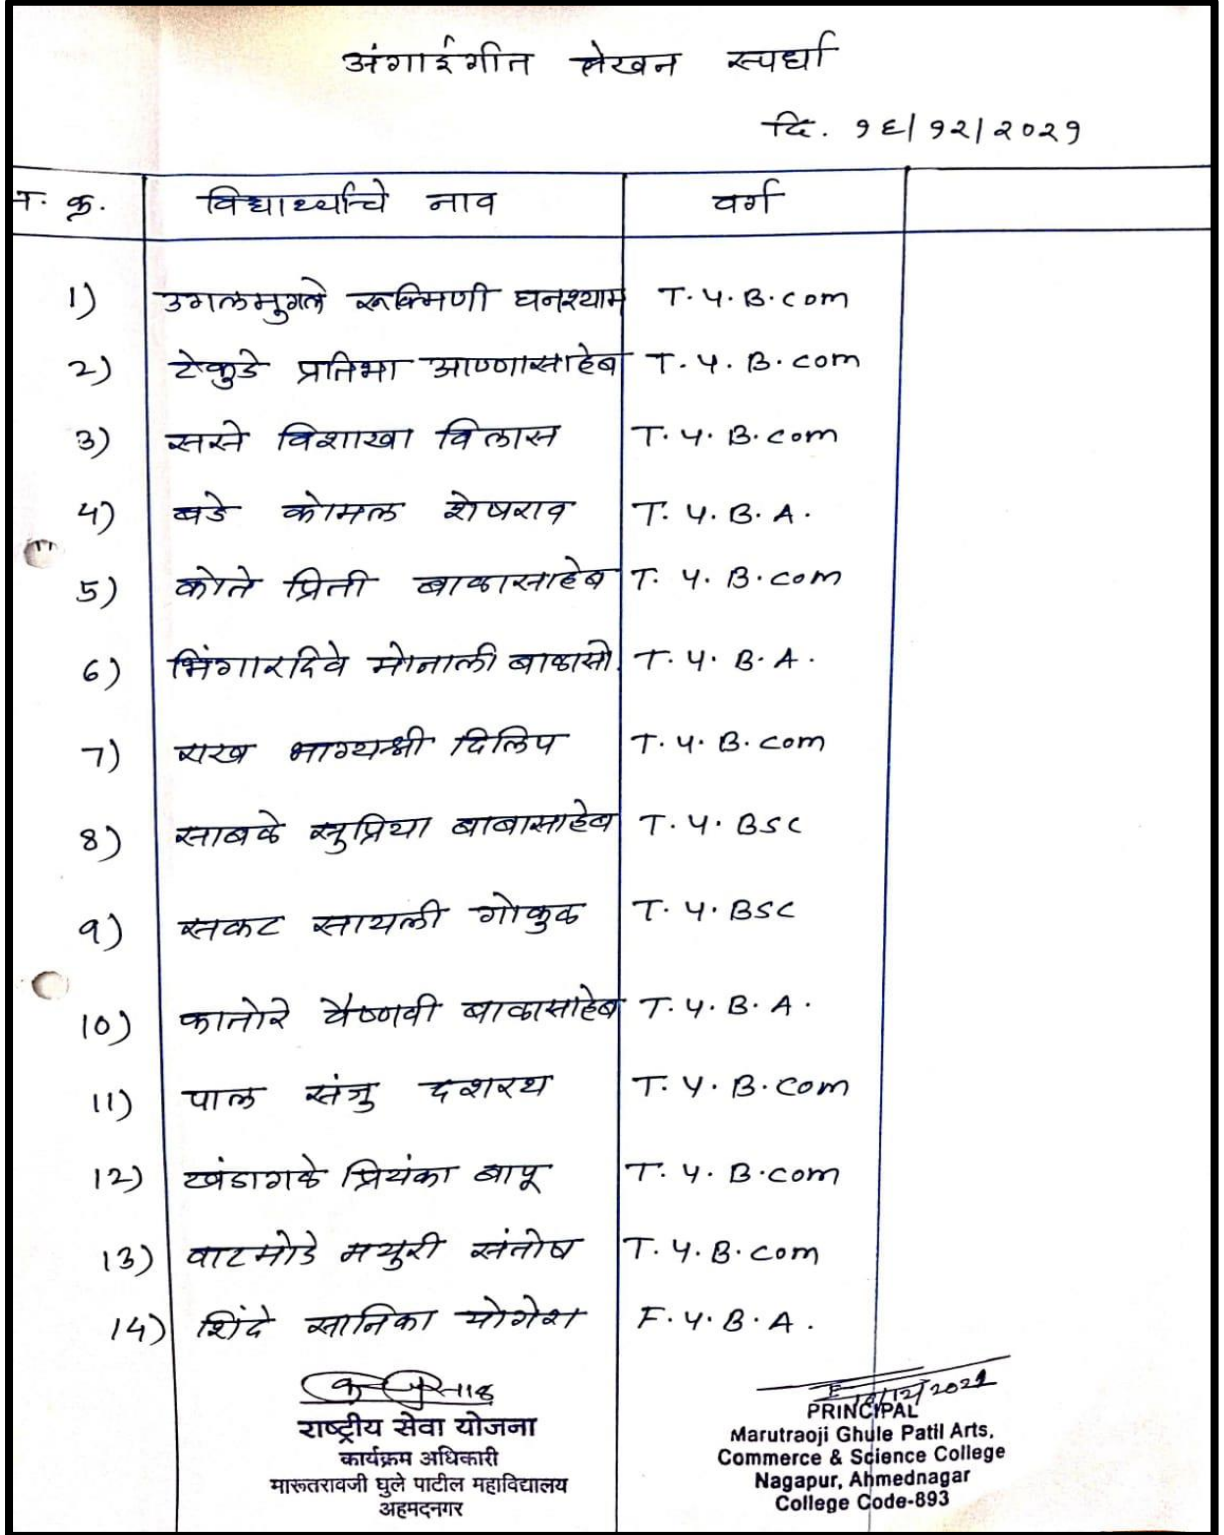 अंगाईगीत लेखन स्पर्धा
दि. १६/१२/२०२१
क्र. विद्यार्थ्याचे नाव वर्ग
1) उगलमुगले रूक्मिणी घनश्याम T.Y.B.com
2) टेकुडे प्रतिभा आण्णासाहेब T.Y.B.com
3) ससे विशाखा विलास T.Y.B.com
4) बडे कोमल शेषराव T.Y.B.A.
5) कोते प्रिती बाळासाहेब T.Y.B.com
6) भिंगारदिवे मोनाली बाळासो. T.Y.B.A.
7) राख भाग्यश्री दिलिप T.Y.B.com
8) साबळे सुप्रिया बाबासाहेब T.Y.BSC
9) सकट सायली गोकुळ T.Y.BSC
10) कातोरे वैष्णवी बाळासाहेब T.Y.B.A.
11) पाल संजु दशरथ T.Y.B.com
12) खंडागळे प्रियंका बापू T.Y.B.com
13) वाटमोडे मयुरी संतोष T.Y.B.com
14) शिंदे सानिका योगेश F.Y.B.A.
राष्ट्रीय सेवा योजना
कार्यक्रम अधिकारी
मारूतरावजी घुले पाटील महाविद्यालय
अहमदनगर
PRINCIPAL
Marutraoji Ghule Patil Arts,
Commerce & Science College
Nagapur, Ahmednagar
College Code-893